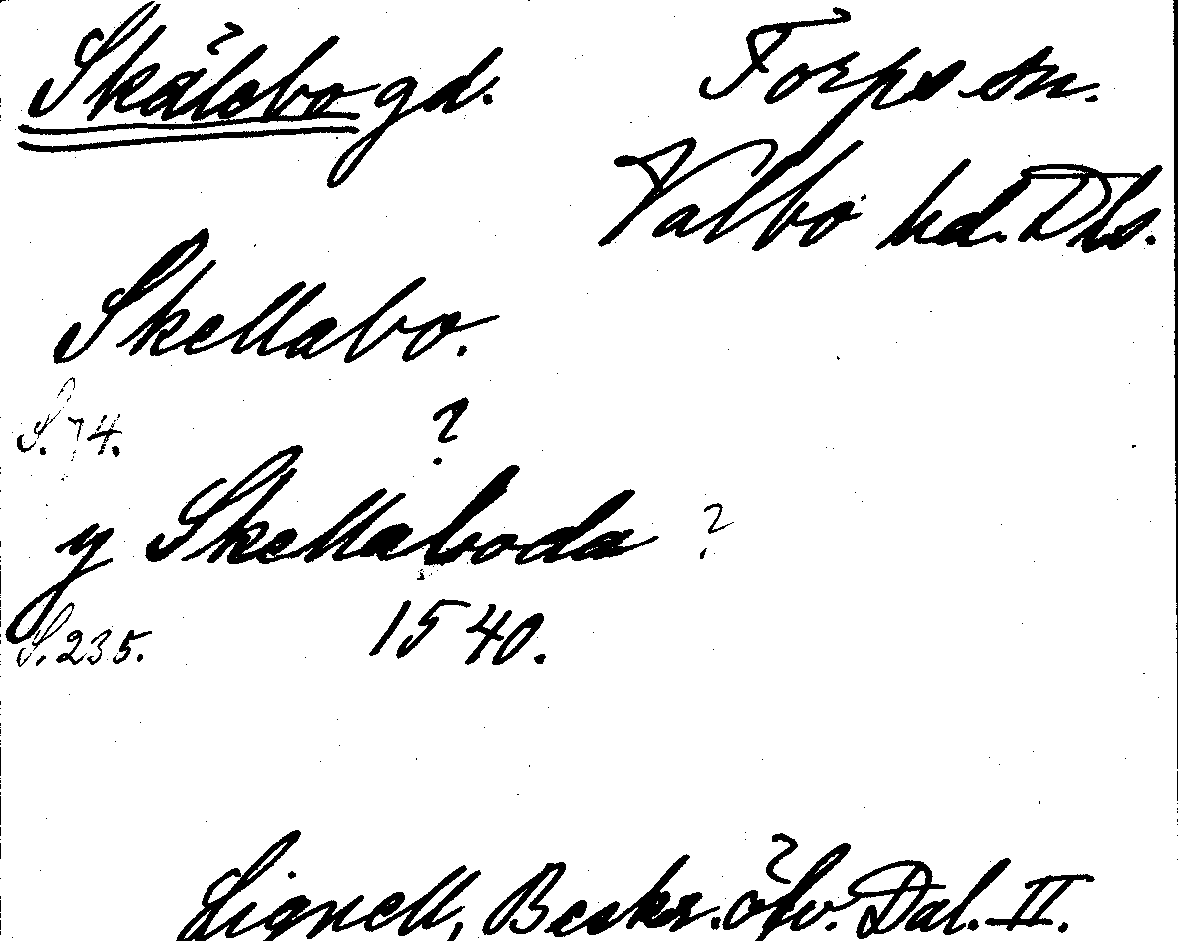 Skälebo gd. Torps sn.
Valbo hd. Dls.
Skellabo.
S. 74.
?
y Skellaboda ?
S. 235. 1540.
Lignell, Beskr. öfv. Dal. II.